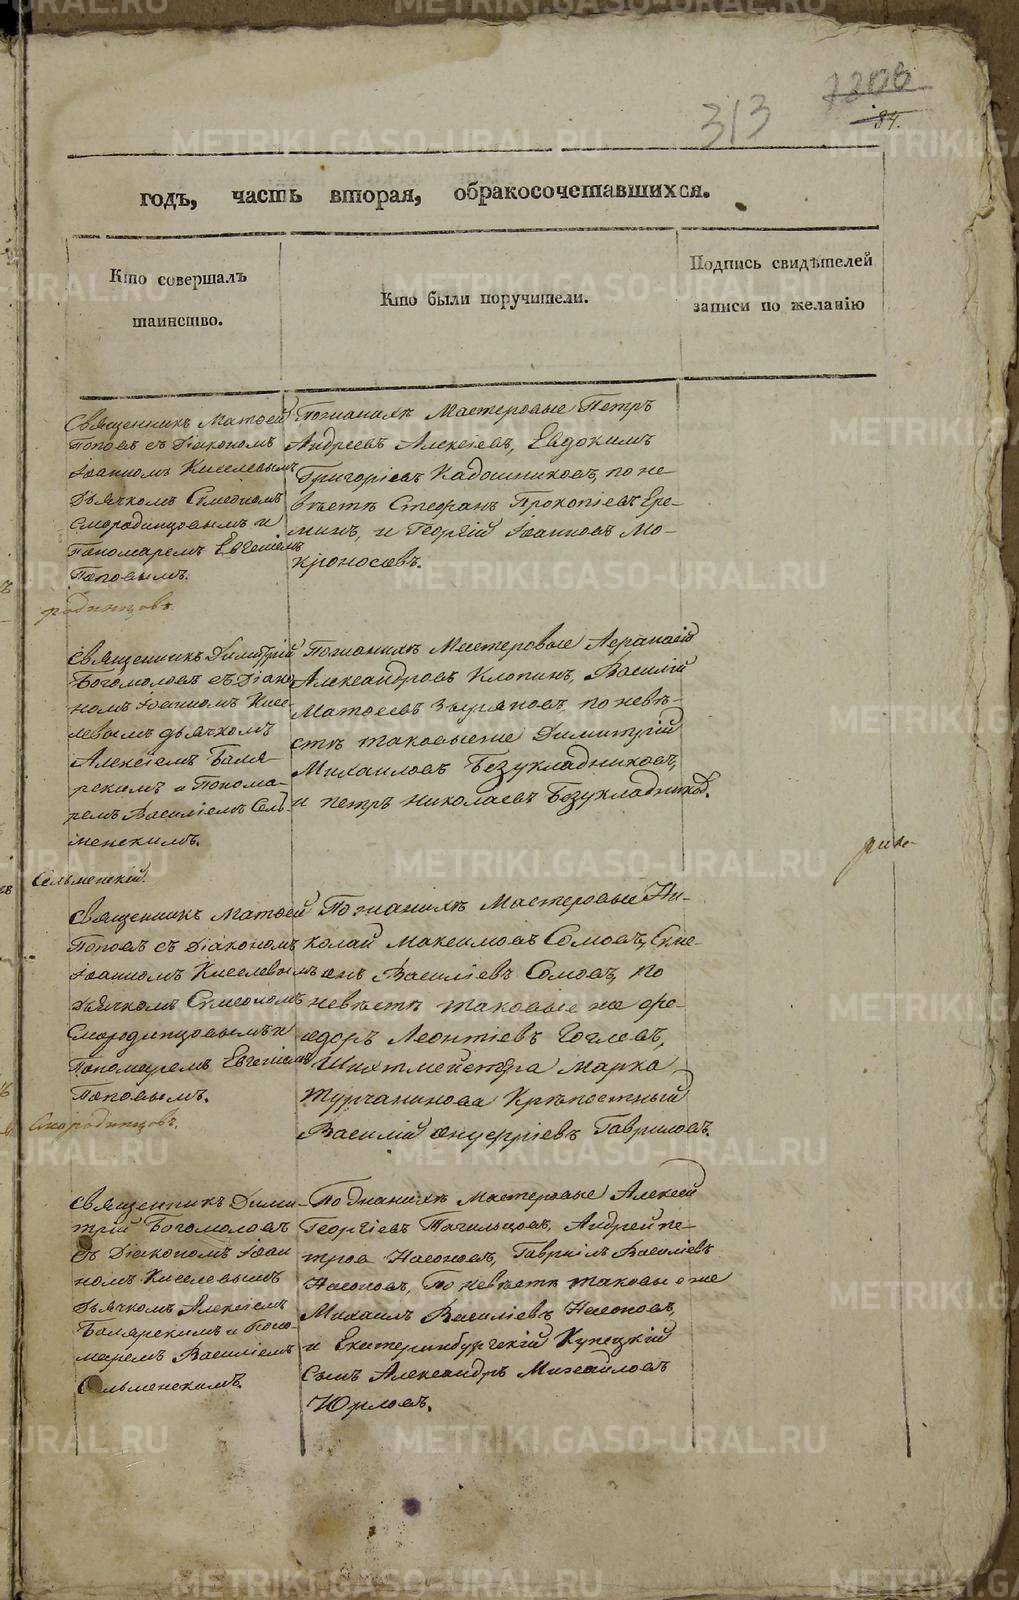 313
1200
84.
годъ, часть вторая, обракосочетавшихся.
Кто совершалъ
таинство.
Кто были поручители.
Подпись свидѣтелей
записи по желанію
Священникъ Матѳей
Поповъ съ Діакономъ
Іоанномъ Киселевымъ
Дьячкомъ Симеономъ
Смородинцовымъ и
Пономаремъ Евгеніемъ
Поповымъ.
родинцовъ
По женихѣ Мастеровые Петръ
Андреевъ Алексѣевъ, Евдокимъ
Григорьевъ Кадошниковъ, по не-
вѣстѣ Стефанъ Прокопіевъ Ере-
минъ, и Георгій Іоанновъ Мо-
кроносовъ.
Священникъ Димитрій
Богомоловъ съ Діако-
номъ Іоанномъ Кисе-
левымъ дьячкомъ
Алексіемъ
и Понома-
ремъ Василіемъ Сель-
менскимъ.
Сельменскій.
По женихѣ Мастеровые Аѳанасій
Александровъ Клопинъ, Василій
Матѳеевъ Зыряновъ, по невѣ-
стѣ таковыеже Димитрій
Михаиловъ Безукладниковъ,
и Петръ Николаевъ Безукладников.
Священникъ Матѳей
Поповъ съ Діакономъ
Іоанномъ Киселевымъ
Дьячкомъ Симеономъ
Смородинцовымъ и
Пономаремъ Евгеніемъ
Поповымъ.
Смородинцовъ.
По женихѣ Мастеровые Ни-
колай Максимовъ Сомовъ,
Василіевъ Сомовъ, по
невѣстѣ таковые же Ѳе-
одоръ Леонтіевъ
Шихтмейстера Марка
Турчанинова Крѣпостный
Василій Онуфріевъ Гавриловъ.
Священникъ Дими-
трій Богомоловъ
съ Діакономъ Іоан
номъ Киселевымъ
Дьячкомъ Алексіемъ
и Поно-
маремъ Василіемъ
Сельменскимъ.
По женихѣ Мастеровые Алексѣй
Георгіевъ Тагильцовъ, Андрей Пе-
тров Насоновъ, Гавріилъ Василіевъ
Насоновъ, По невѣстѣ таковые же
Михаилъ Василіевъ Насоновъ,
и Екатеринбургскій Купецкій
Сынъ Александръ Михайловъ
Юрловъ.
METRIKI.GASO-URAL.RU